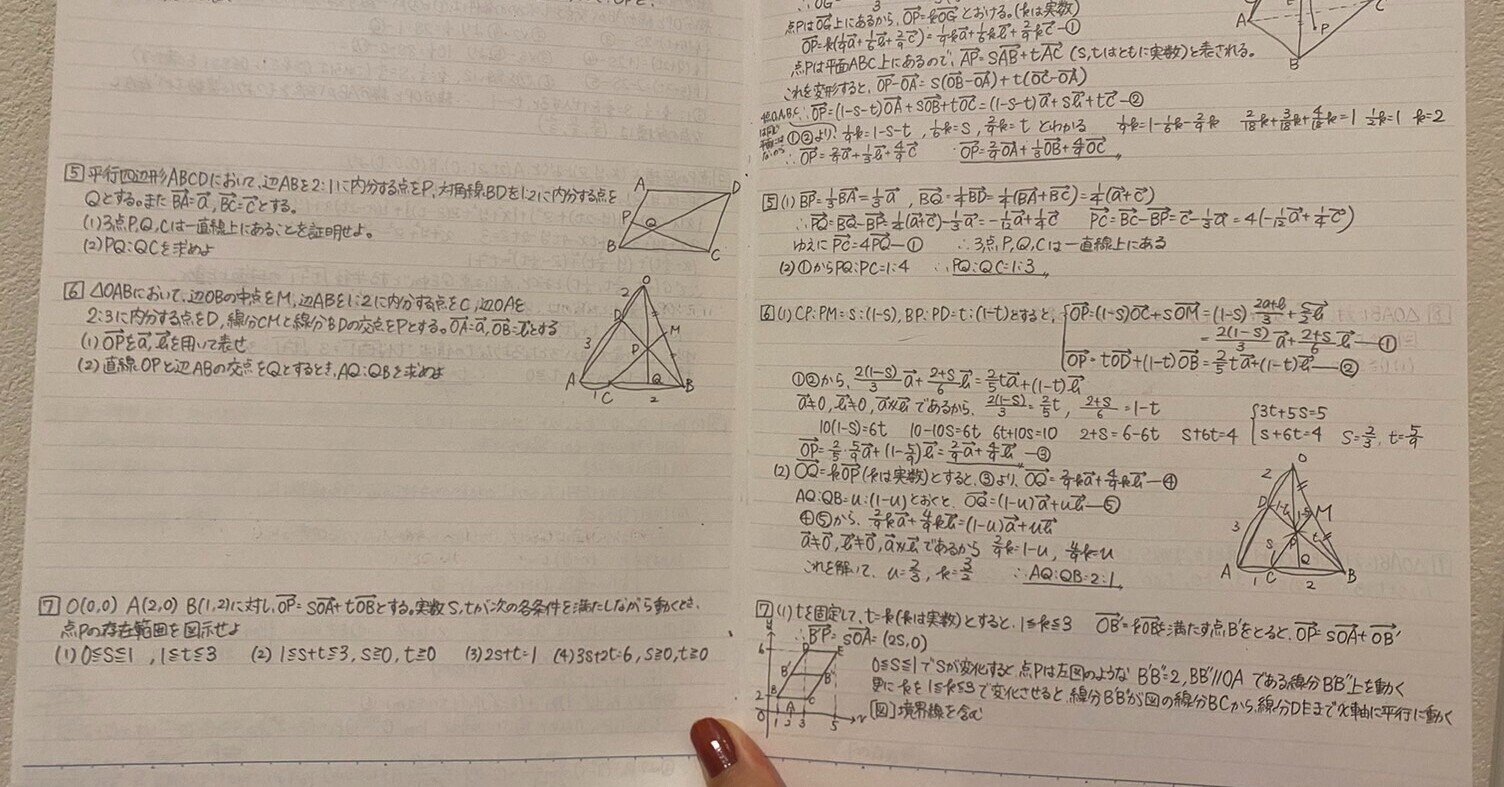 5 平行四辺形ABCDにおいて、辺ABを2:1に内分する点をP、対角線BDを1:2に内分する点を
Qとする。また BA=a, BC=cとする。
(1) 3点P,Q,Cは一直線上にあることを証明せよ。
(2) PQ:QCを求めよ
A
D
P
Q
B
C
6 △OABにおいて、辺OBの中点をM、辺ABを1:2に内分する点をC、辺OAを
2:3に内分する点をD、線分CMと線分BDの交点をPとする。OA=a, OB=bとする
(1) OPをa,bを用いて表せ
(2) 直線OPと辺ABの交点をQとするとき、AQ:QBを求めよ
O
2
D
M
3
P
A
1
C
Q
2
B
7 O(0,0) A(2,0) B(1,2)に対し、OP=sOA+tOBとする。実数s,tが次の各条件を満たしながら動くとき、
点Pの存在範囲を図示せよ
(1) 0≦s≦1 , 1≦t≦3 (2) 1≦s+t≦3, s≧0, t≧0 (3) 2s+t=1 (4) 3s+2t=6, s≧0, t≧0
点PはOG上にあるから、OP=kOGとおける。(kは実数)
点Pは平面ABC上にあるので、AP=sAB+tAC (s,tはともに実数)と表される。
これを変形すると、OP-OA=s(OB-OA)+t(OC-OA)
∴OP=(1-s-t)OA+sOB+tOC=(1-s-t)a+sb+tc-②
A
B
P
C
5 (1) BP=1/3BA=1/3a , BQ=1/4BD=1/4(BA+BC)=1/4(a+c)
∴PQ=BQ-BP=1/4(a+c)-1/3a=-1/12a+1/4c PC=BC-BP=c-1/3a=4(-1/12a+1/4c)
ゆえに PC=4PQ-① ∴3点P,Q,Cは一直線上にある
(2) ①からPQ:PC=1:4 ∴PQ:QC=1:3
6 (1) CP:PM=s:(1-s), BP:PD=t:(1-t)とすると、 OP=(1-s)OC+sOM=(1-s) (2a+b)/3+s/2b
=2(1-s)/3 a+(2+s)/6 b-①
OP=tOD+(1-t)OB=2/5ta+(1-t)b-②
①②から、2(1-s)/3 a+(2+s)/6 b=2/5ta+(1-t)b
a≠0, b≠0, a∦bであるから、2(1-s)/3=2/5t, (2+s)/6=1-t
10(1-s)=6t 10-10s=6t 6t+10s=10 2+s=6-6t s+6t=4 {3t+5s=5 s+6t=4 s=2/3, t=5/9
OP=2/5・5/9a+(1-5/9)b=2/9a+4/9b-③
(2) OQ=kOP(kは実数)とすると、③より、OQ=2/9ka+4/9kb-④
AQ:QB=u:(1-u)とおくと、OQ=(1-u)a+ub-⑤
④⑤から、2/9ka+4/9kb=(1-u)a+ub
a≠0, b≠0, a∦bであるから 2/9k=1-u, 4/9k=u
これを解いて、u=2/3, k=3/2 ∴AQ:QB=2:1
O
2
D
1-t
1-s
M
3
P
t
s
A
1
C
Q
2
B
7 (1) tを固定して、t=k(kは実数)とすると、1≦k≦3 OB'=kOBを満たす点B'をとると、OP=sOA+OB'
∴B'P=sOA=(2s,0)
0≦s≦1でsが変化すると、点Pは左図のような B'B"=2, B'B"//OA である線分B'B"上を動く
更にkを1≦k≦3で変化させると、線分B'B"が図の線分BCから、線分DEまでx軸に平行に動く
[図]境界線を含む
y
6
D
E
B'
B"
2
B
C
A
0
1
2
3
5
x